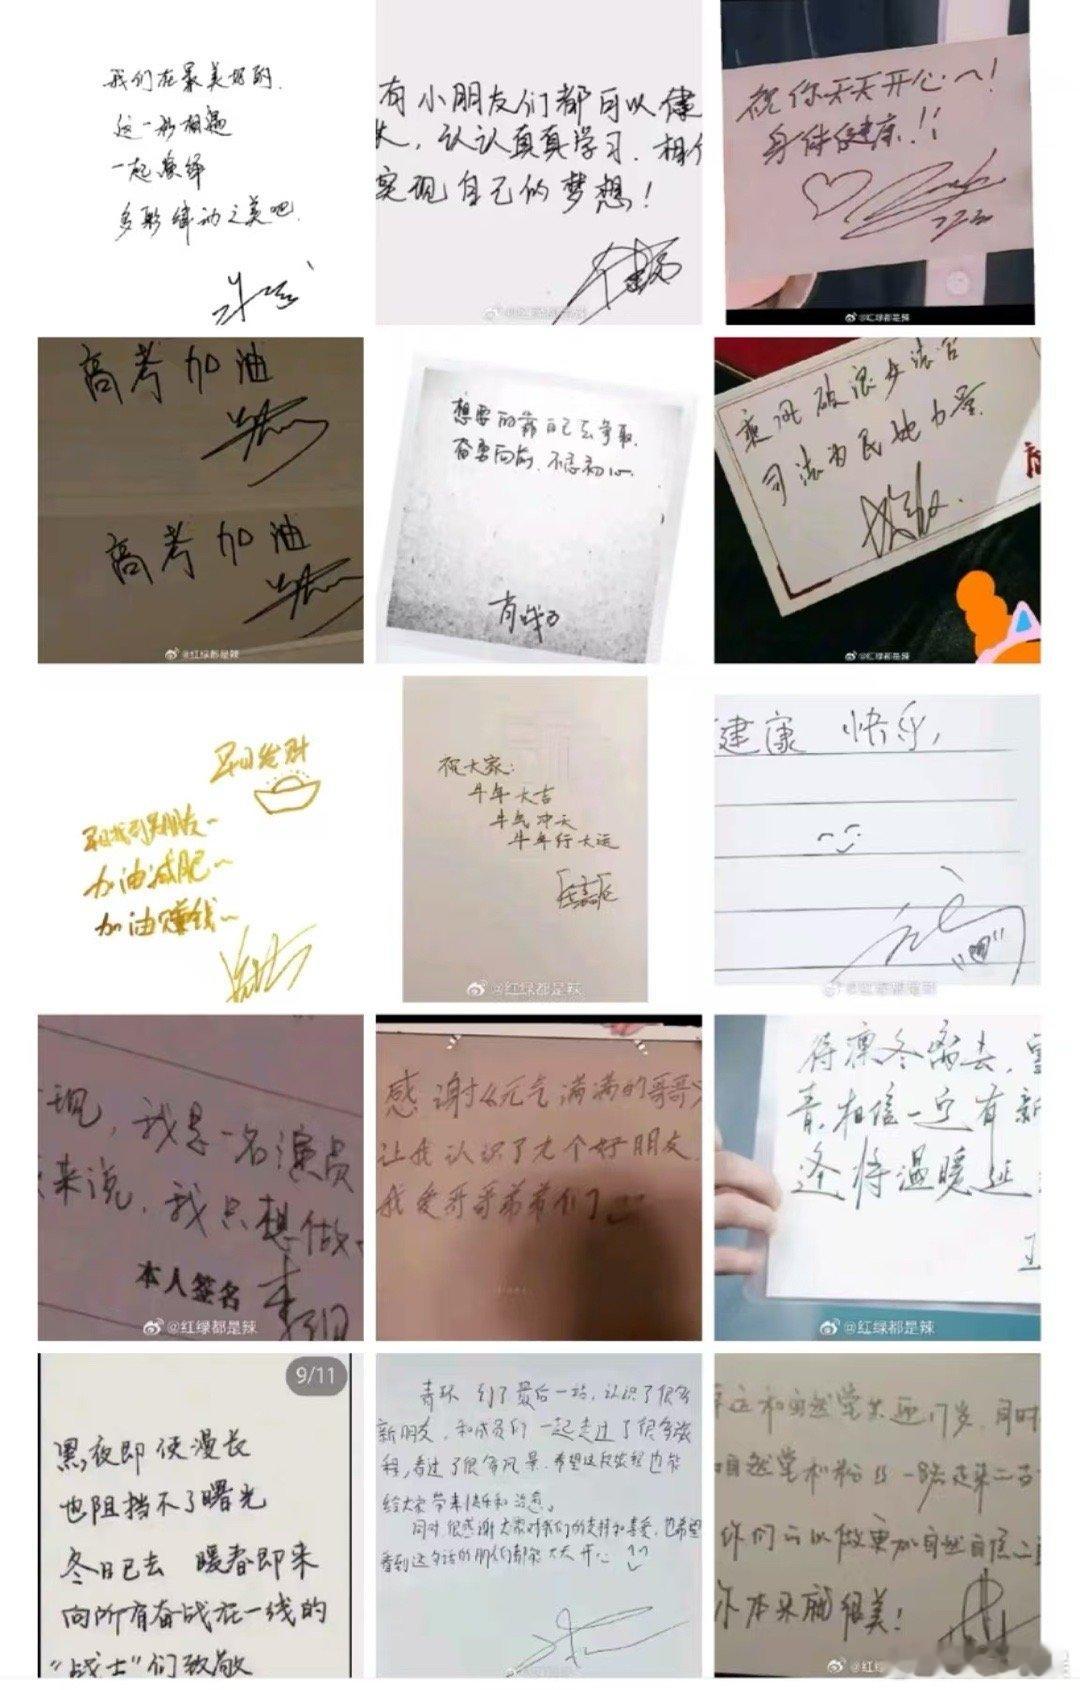 我们在最美好的
这一秒相遇
一起演绎
多彩律动之美吧
有小朋友们都可以健
认认真真学习 相信
实现自己的梦想！
@红绿都是辣
祝你天天开心～！
身体健康！！
@红绿都是辣
高考加油
高考加油
@红绿都是辣
想要的靠自己去争取
奋勇向前，不忘初心
乘风破浪
司法为民 力量
@红绿都是辣
早日发财
早日找到男朋友～
加油减肥～
加油赚钱～
祝大家：
牛年大吉
牛气冲天
牛年行大运
@红绿都是辣
建康 快乐，
@红绿都是辣
现，我是一名演员
来说，我只想做
本人签名
@红绿都是辣
感谢 元气满满的哥哥
让我认识了九个好朋友
我爱哥哥弟弟们
待凛冬离去，雪
青，相信一定有新
逢，将温暖延
王
@红绿都是辣
9/11
黑夜即使漫长
也阻挡不了曙光
冬日已去 暖春即来
向所有奋战在一线的
“战士”们致敬
青环 到了最后一站，认识了很多
新朋友，和成员们一起走过了很多旅
程，看过了很多风景，希望这段旅程也能
给大家带来快乐和治愈。
同时 很感谢大家对我们的支持和喜爱，也希望
看到这句话的朋友们都能天天开心
@红绿都是辣
和自然堂共 17岁，同时
自然堂和 一路走来
你们可以做更加自然自信
你本来就很美！
@红绿